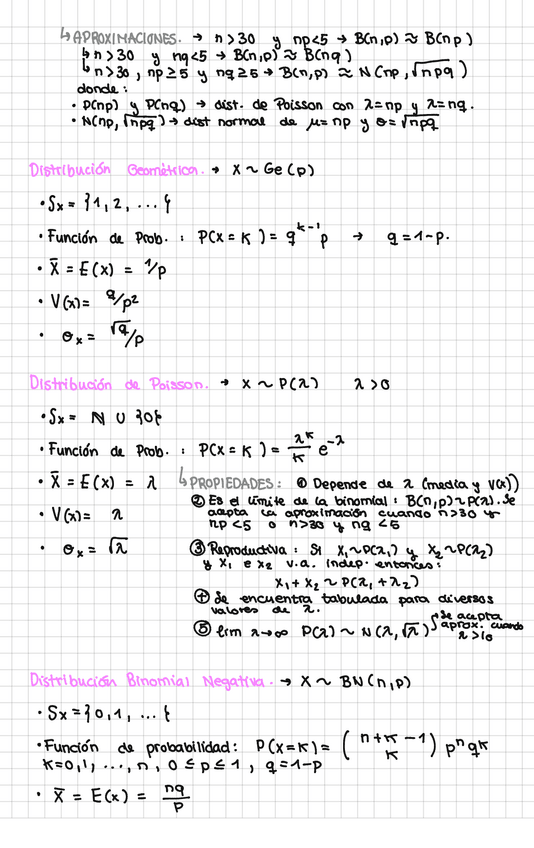 ↳ APROXIMACIONES. → n>30 y np<5 → B(n,p) ≈ B(np)
↳ n>30 y nq<5 → B(n,p) ≈ B(nq)
↳ n>30, np≥5 y nq≥5 → B(n,p) ≈ N(np, √npq)
donde:
• P(np) y P(nq) → dist. de Poisson con λ=np y λ=nq.
• N(np, √npq) → dist normal de μ=np y σ=√npq
Distribución Geométrica. → X ~ Ge(p)
• Sx = {1, 2, ... }
• Función de Prob. : P(X=K) = q^(K-1) p → q=1-p.
• X̄ = E(x) = 1/p
• V(x) = q/p²
• σx = √q/p
Distribución de Poisson. → X ~ P(λ) λ>0
• Sx = N ∪ {0}
• Función de Prob. : P(X=K) = λ^K/K e^(-λ)
• X̄ = E(x) = λ ↳ PROPIEDADES: ① Depende de λ (media y V(x))
② Es el límite de la binomial: B(n,p)~P(λ). Se
acepta la aproximación cuando n>30 y
• V(x) = λ
np<5 o n>30 y nq<5
• σx = √λ ③ Reproductiva: Si X₁~P(λ₁) y X₂~P(λ₂)
y X₁ e X₂ v.a. indep. entonces:
X₁+X₂ ~ P(λ₁+λ₂)
④ Se encuentra tabulada para diversos
valores de λ.
⑤ lím λ→∞ P(λ) ~ N(λ, √λ) Se acepta
aprox. cuando
λ>10
Distribución Binomial Negativa. → X ~ BN(n,p)
• Sx = {0, 1, ... }
• Función de probabilidad: P(X=K) = (n+K-1 K) pⁿq^K
K=0,1, ..., n, 0≤p≤1, q=1-p
• X̄ = E(x) = nq/p